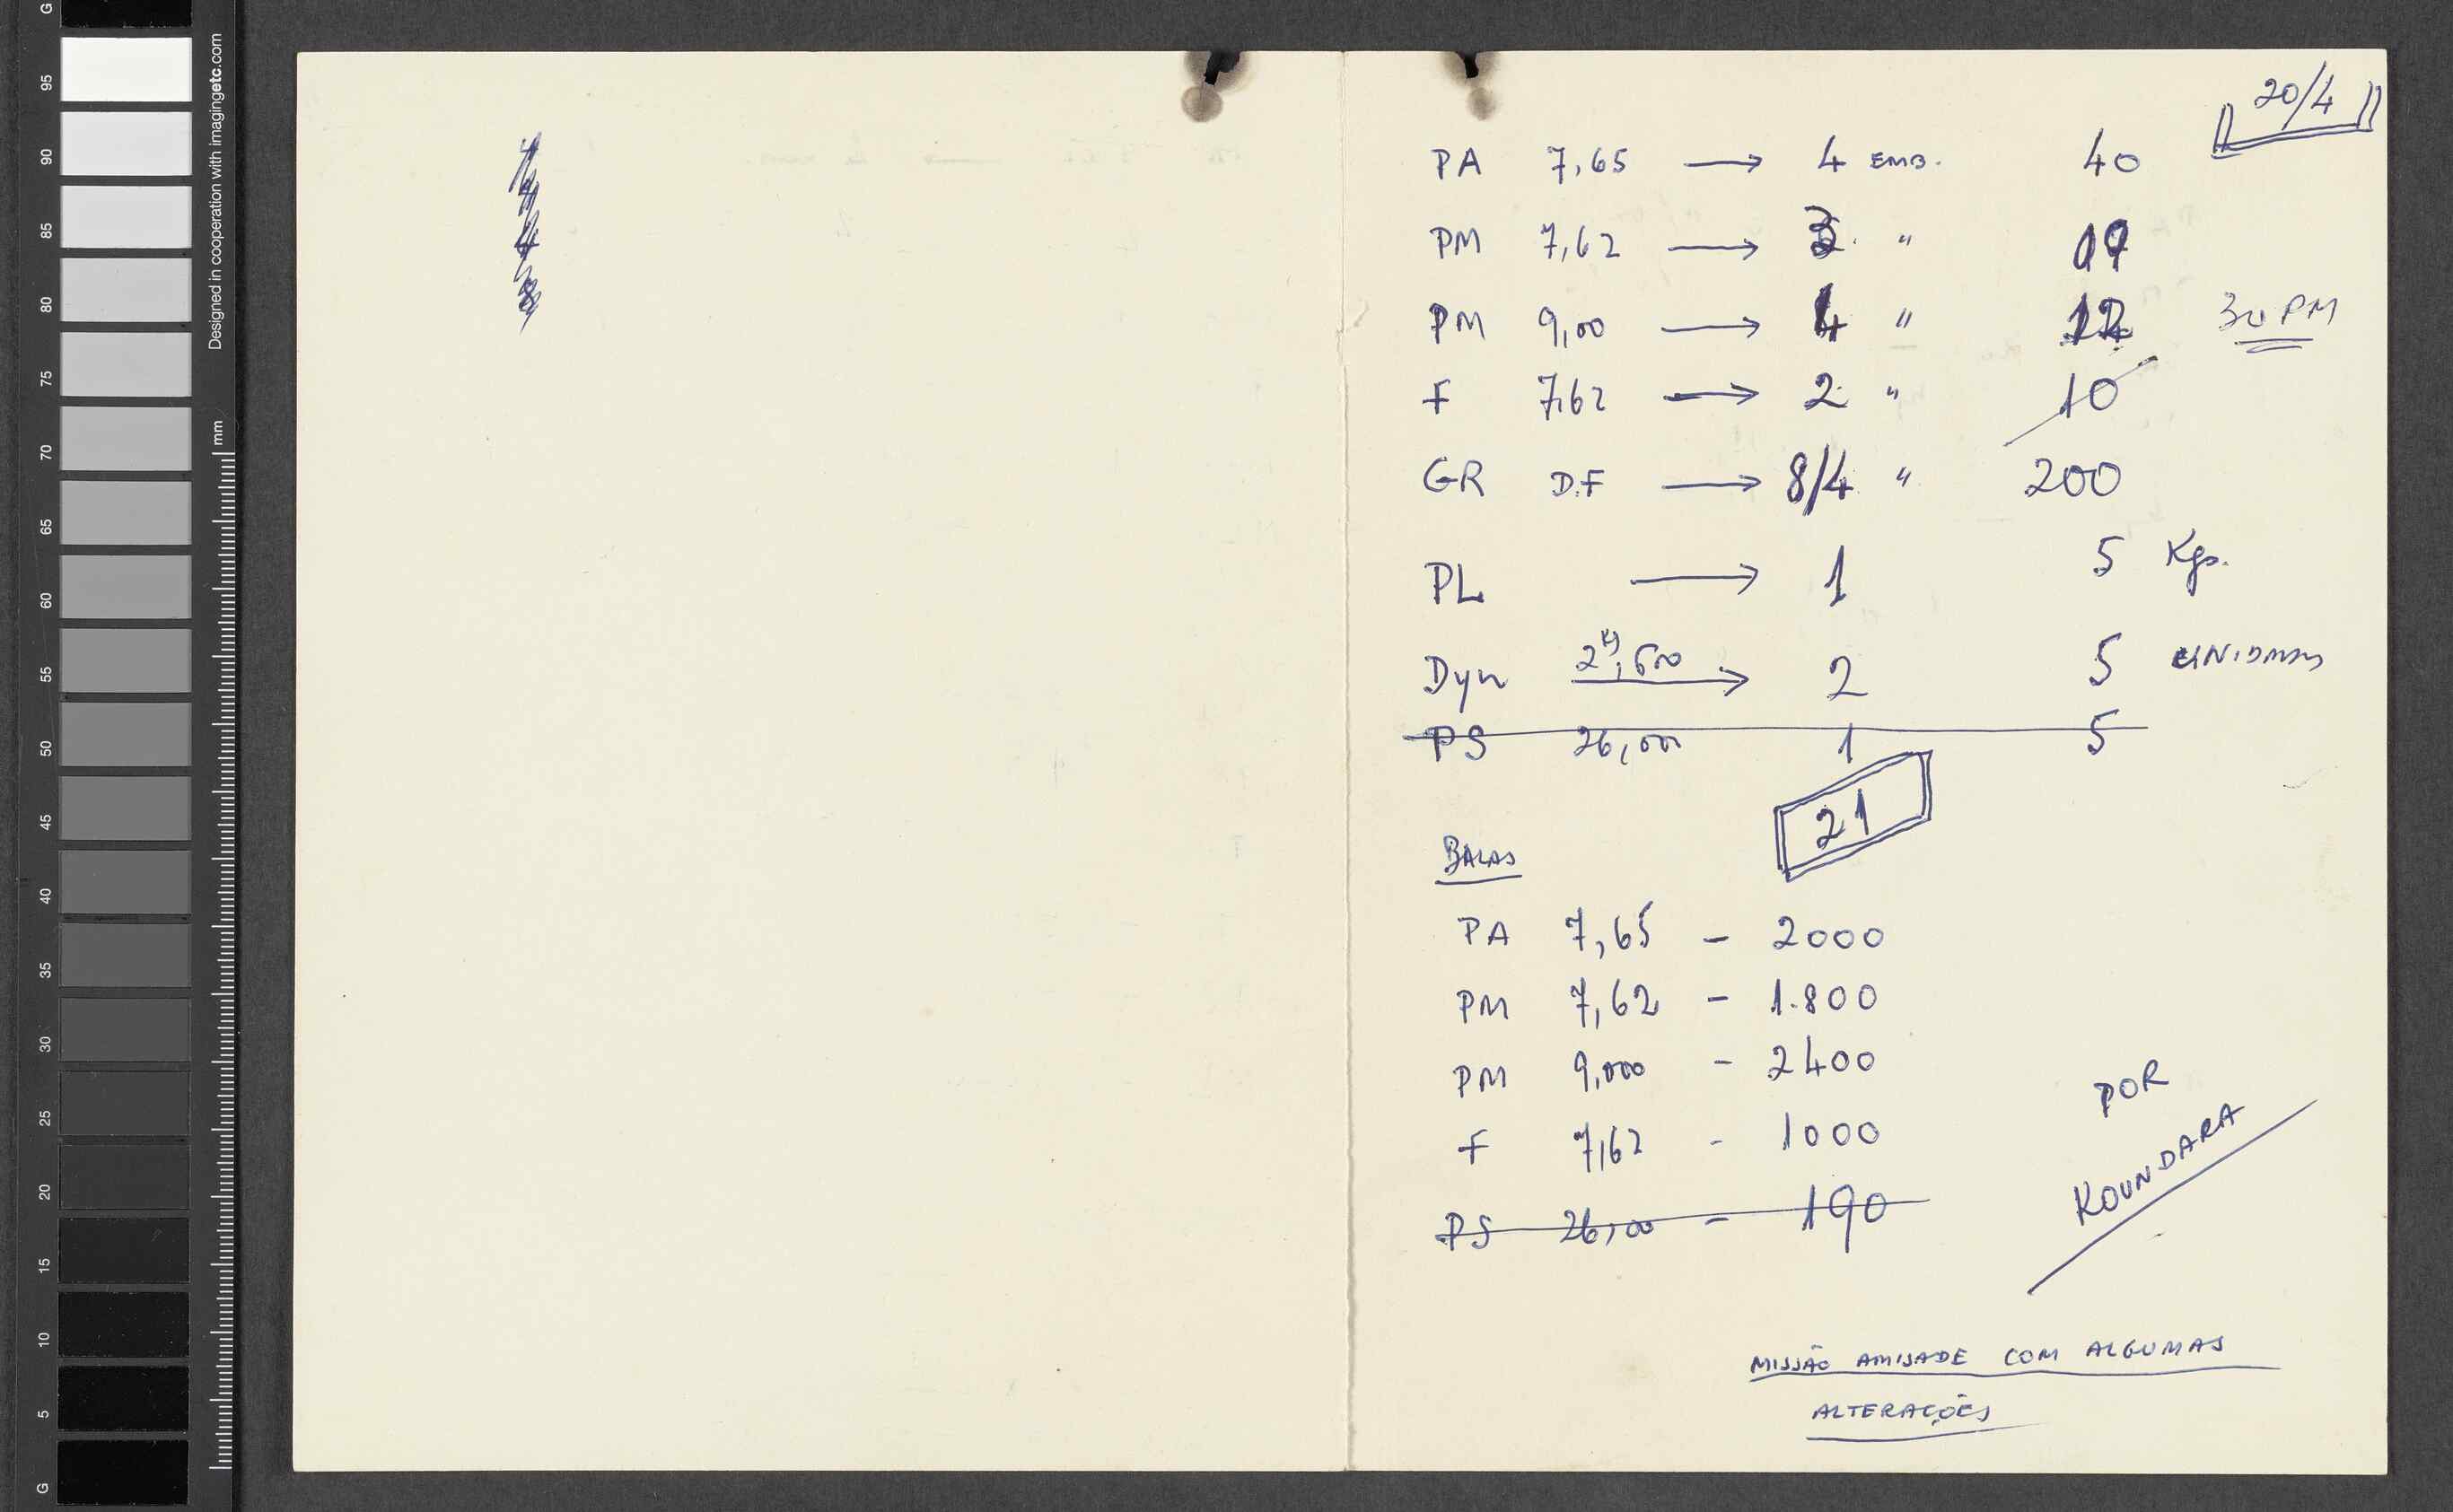 20/4
PA 7,65 → 4 EMB. 40
PM 7,62 → 3 "
PM 9,00 → 4 " 12 30 PM
F 7,62 → 2 " 10
GR D.F → 8/4 " 200
PL → 1 5 Kgs.
Dyn 2kg,600 → 2 5 UNIDADES
PS 26,000 1 5
21
BALAS
PA 7,65 - 2000
PM 7,62 - 1.800
PM 9,000 - 2400
F 7,62 - 1000
PS 26,00 - 190
POR
KOUNDARA
MISSÃO AMISADE COM ALGUMAS
ALTERAÇÕES
G
95
90
85
80
75
70
65
60
55
50
45
40
35
30
25
20
15
10
5
G
Designed in cooperation with imagingetc.com
mm